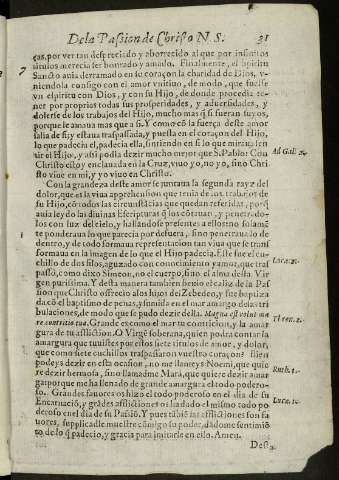 De la Passion de Christo N. S. 31
ças, por ver tan despreciado y aborrecido al que por infinitos
titulos merecia ser honrado y amado. Finalmente, el Spiritu
Sancto auia derramado en su coraçon la charidad de Dios, v-
niendola consigo con el amor vnitiuo, de modo, que fuesse
vn espiritu con Dios, y con su Hijo, de donde procedia te-
ner por proprios todas sus prosperidades, y aduersidades, y
dolerse de los trabajos del Hijo, mucho mas q̃ si fueran suyos,
porque le amaua mas que a si. Y como cõ la fuerça deste amor
salia de si, y estaua traspassada, y puesta en el coraçon del Hijo,
lo que padecia el, padecia ella, sintiendo en si lo que miraua sen-
tir el Hijo, y assi podia dezir mucho mejor que S. Pablo: Con
Christo estoy enclauada en la Cruz, viuo yo, no yo, sino Chri-
sto viue en mi, y yo viuo en Christo.
Ad Gal. 2.
Con la grandeza deste amor se juntaua la segunda rayz del
dolor, que es la viua apprehension que tenia de los trabajos de
su Hijo, cõ todos las circunstãcias que quedan referidas, porq̃
auia leydo las diuinas Escripturas q̃ los cõtauan, y penetrado-
los con luz del cielo, y hallandose presente a ellos no solamẽ-
te ponderaua lo que parecia por defuera, sino penetraua lo de
dentro, y de todo formaua representacion tan viua que se trans
formaua en la imagen de lo que el Hijo padecia. Este fue el cu-
chillo de dos filos, aguzado con conocimiento y amor, que tras
passò, como dixo Simeon, no el cuerpo, sino el alma desta Vir-
gen purissima. Y desta manera tambien beuio el caliz de la Pas
sion que Christo ofrecio a los hijos de Zebedeo, y fue baptiza
da cõ el baptismo de penas, y sumida en el mar amargo de las tri
bulaciones, de modo que se pudo dezir della. Magna est velut ma
re contritio tua. Grande es como el mar tu contricion, y la amar
gura de tu afflicciõ. O Virgẽ soberana, quien podra contar la
amargura que tuuistes por estos siete titulos de amor, y dolor,
que como siete cuchillos traspassaron vuestro coraçon? Bien
podeys dezir en esta ocasion, no me llameys Noemi, que quie
re dezir hermosa, sino llamadme Mara, que quiere dezir amar
ga: porque me ha llenado de grande amargura el todo podero-
so. Grandes fauores os hizo el todo poderoso en el dia de su
Encarnaciõ, y grãdes afflictiones os ha dado el mismo todo po
deroso en el dia de su Passiõ. Y pues tãbiẽ las afflictiones son fa
uores, supplicadle muestre cõmigo su poder, dãdome sentimiẽ
to de lo q̃ padecio, y gracia para imitarle en ello. Amen.
Luca. 2.
Thren. 2.
Ruth. 1.
Luca. 1.